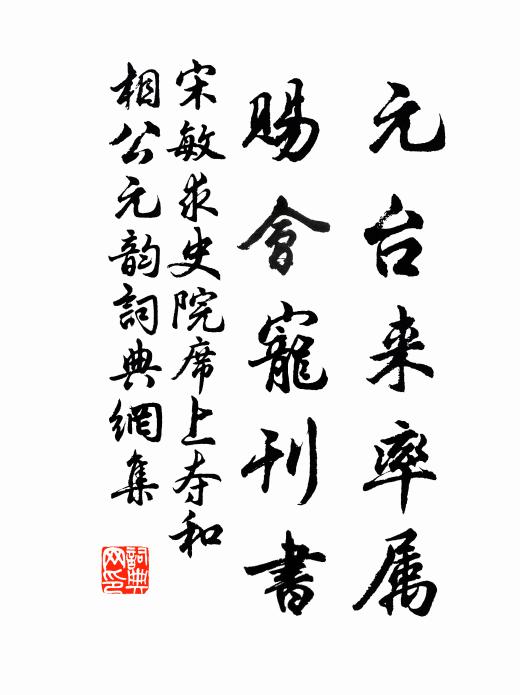 元台来率属
賜會寵刊書
宋敏求史院席上夲和
相公元韵詞典網集
詞典网印